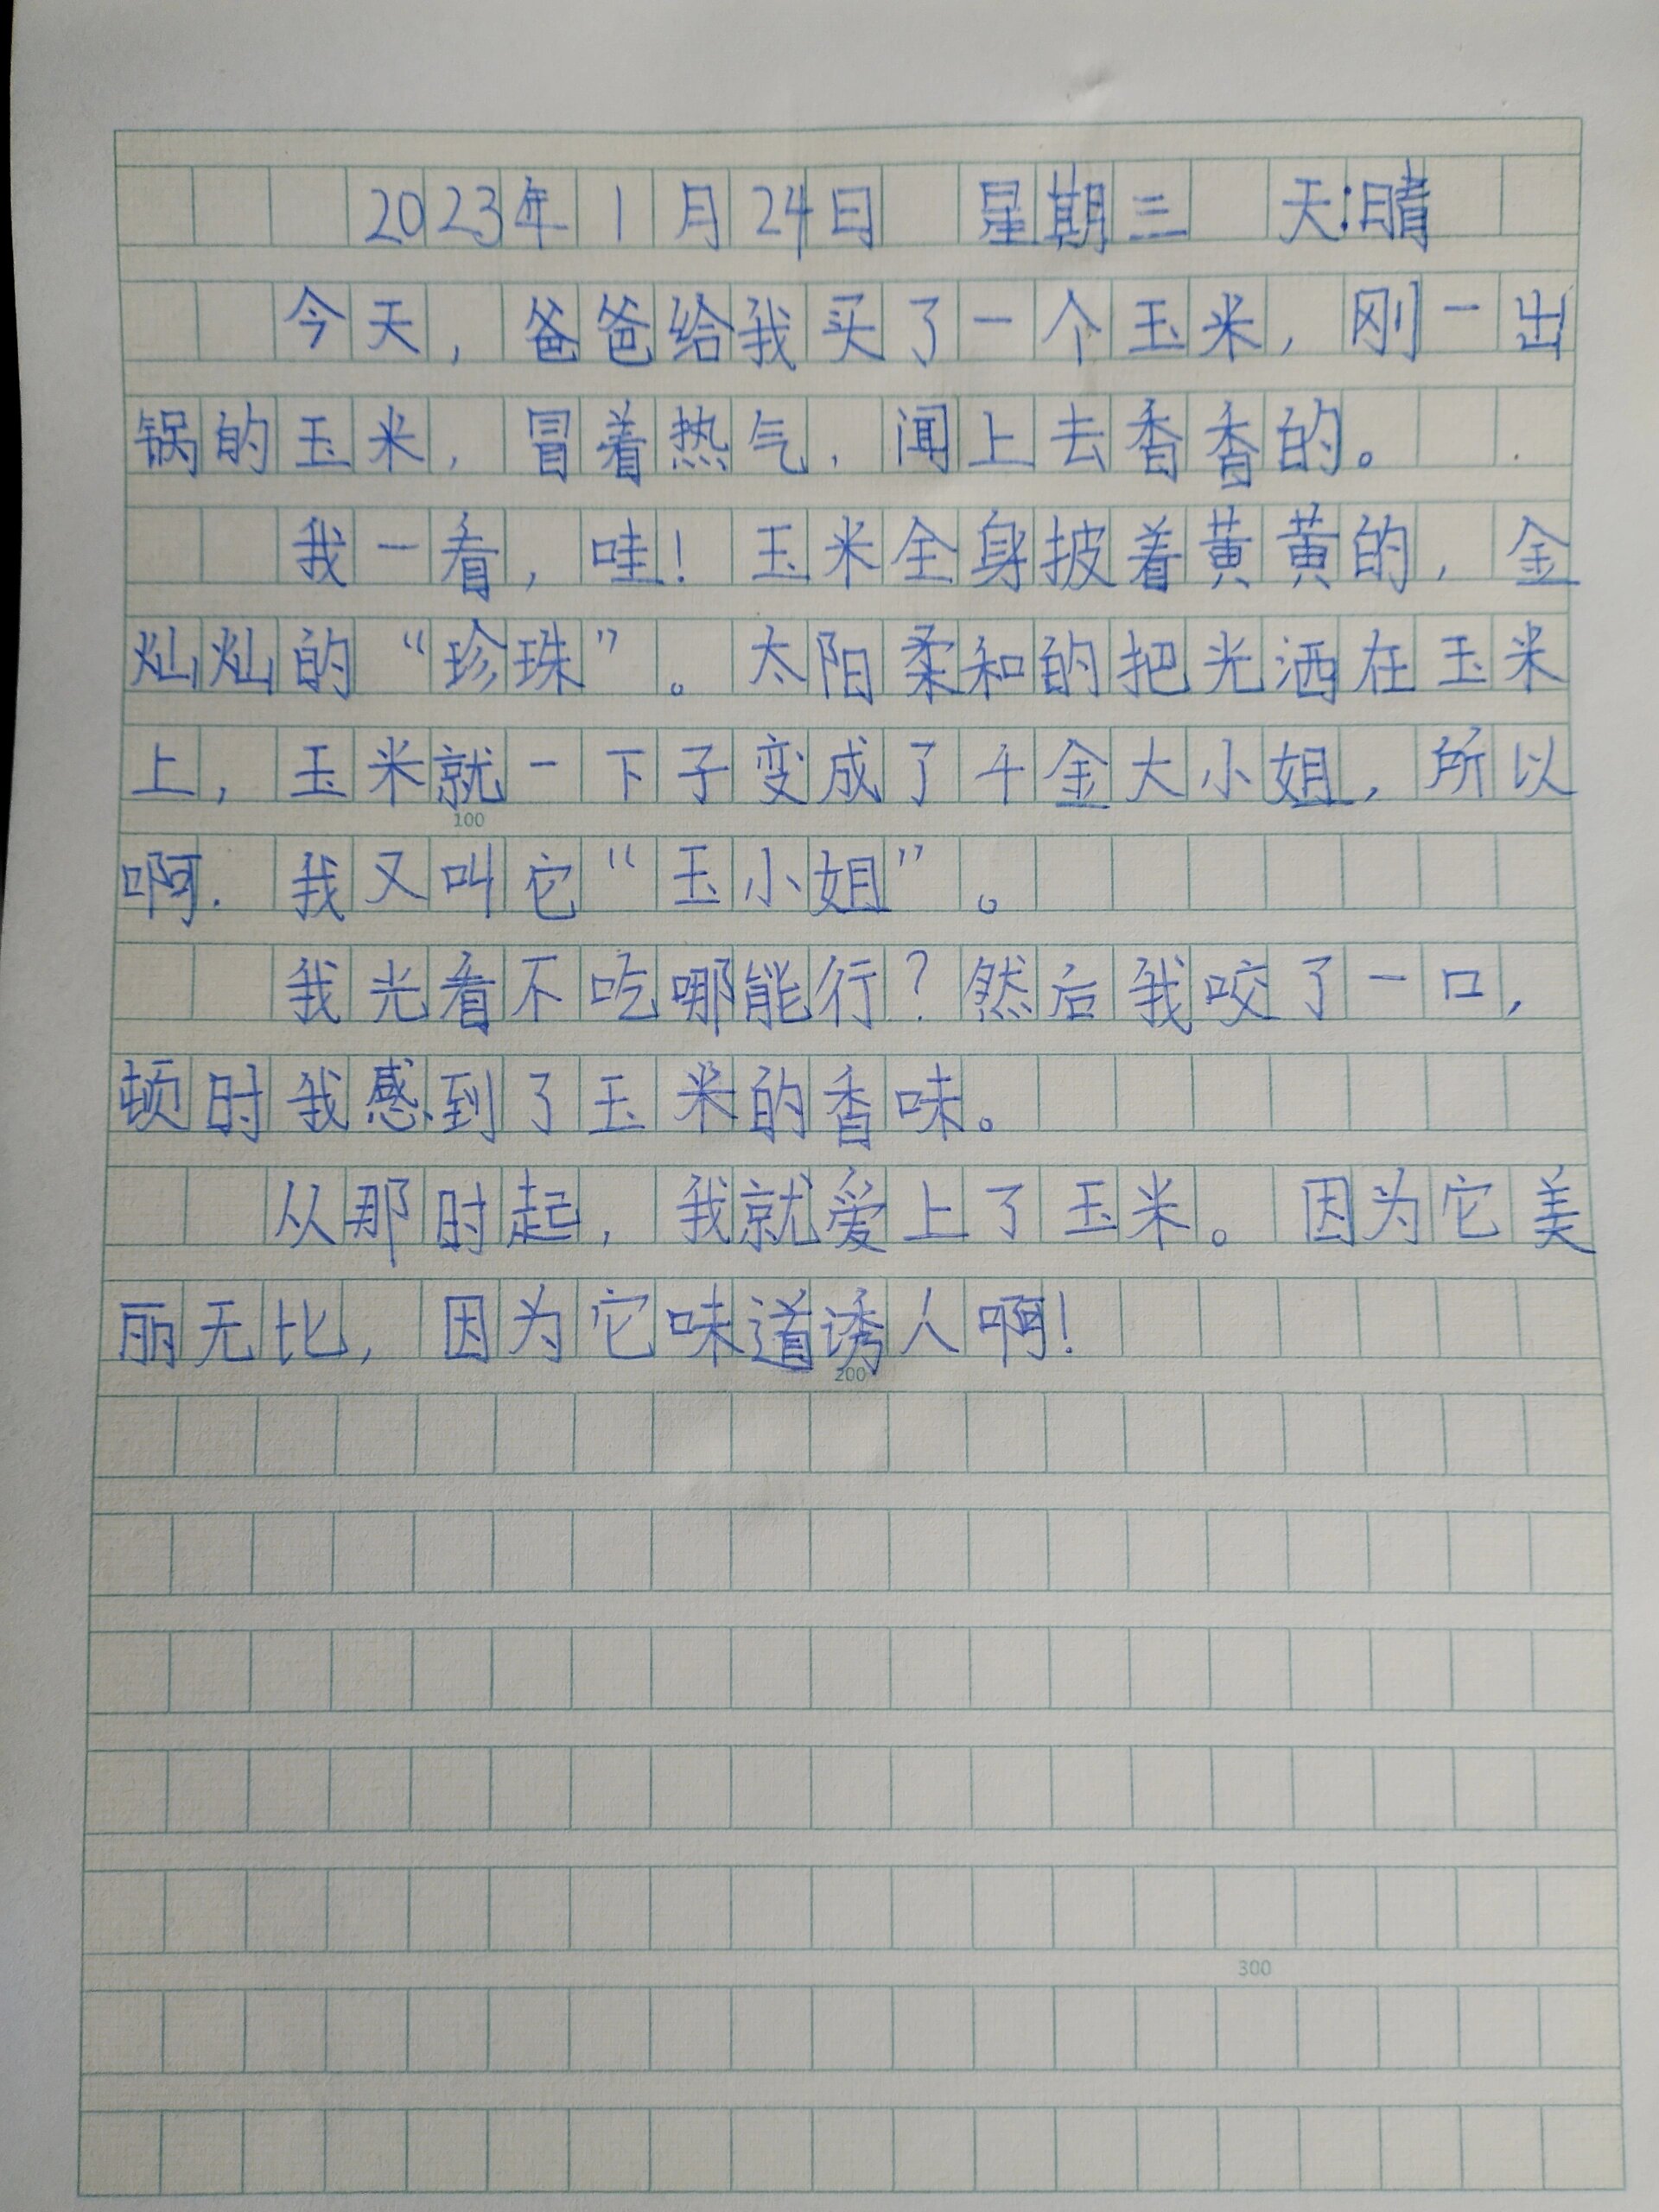 2023年1月24日 星期三 天:晴
今天，爸爸给我买了一个玉米，刚一出
锅的玉米，冒着热气，闻上去香香的。
我一看，哇！玉米全身披着黄黄的，金
灿灿的“珍珠”。太阳柔和的把光洒在玉米
上，玉米就一下子变成了千金大小姐，所以
100
啊.我又叫它“玉小姐”。
我光看不吃哪能行？然后我咬了一口，
顿时我感到了玉米的香味。
从那时起，我就爱上了玉米。因为它美
丽无比，因为它味道诱人啊！
200
300